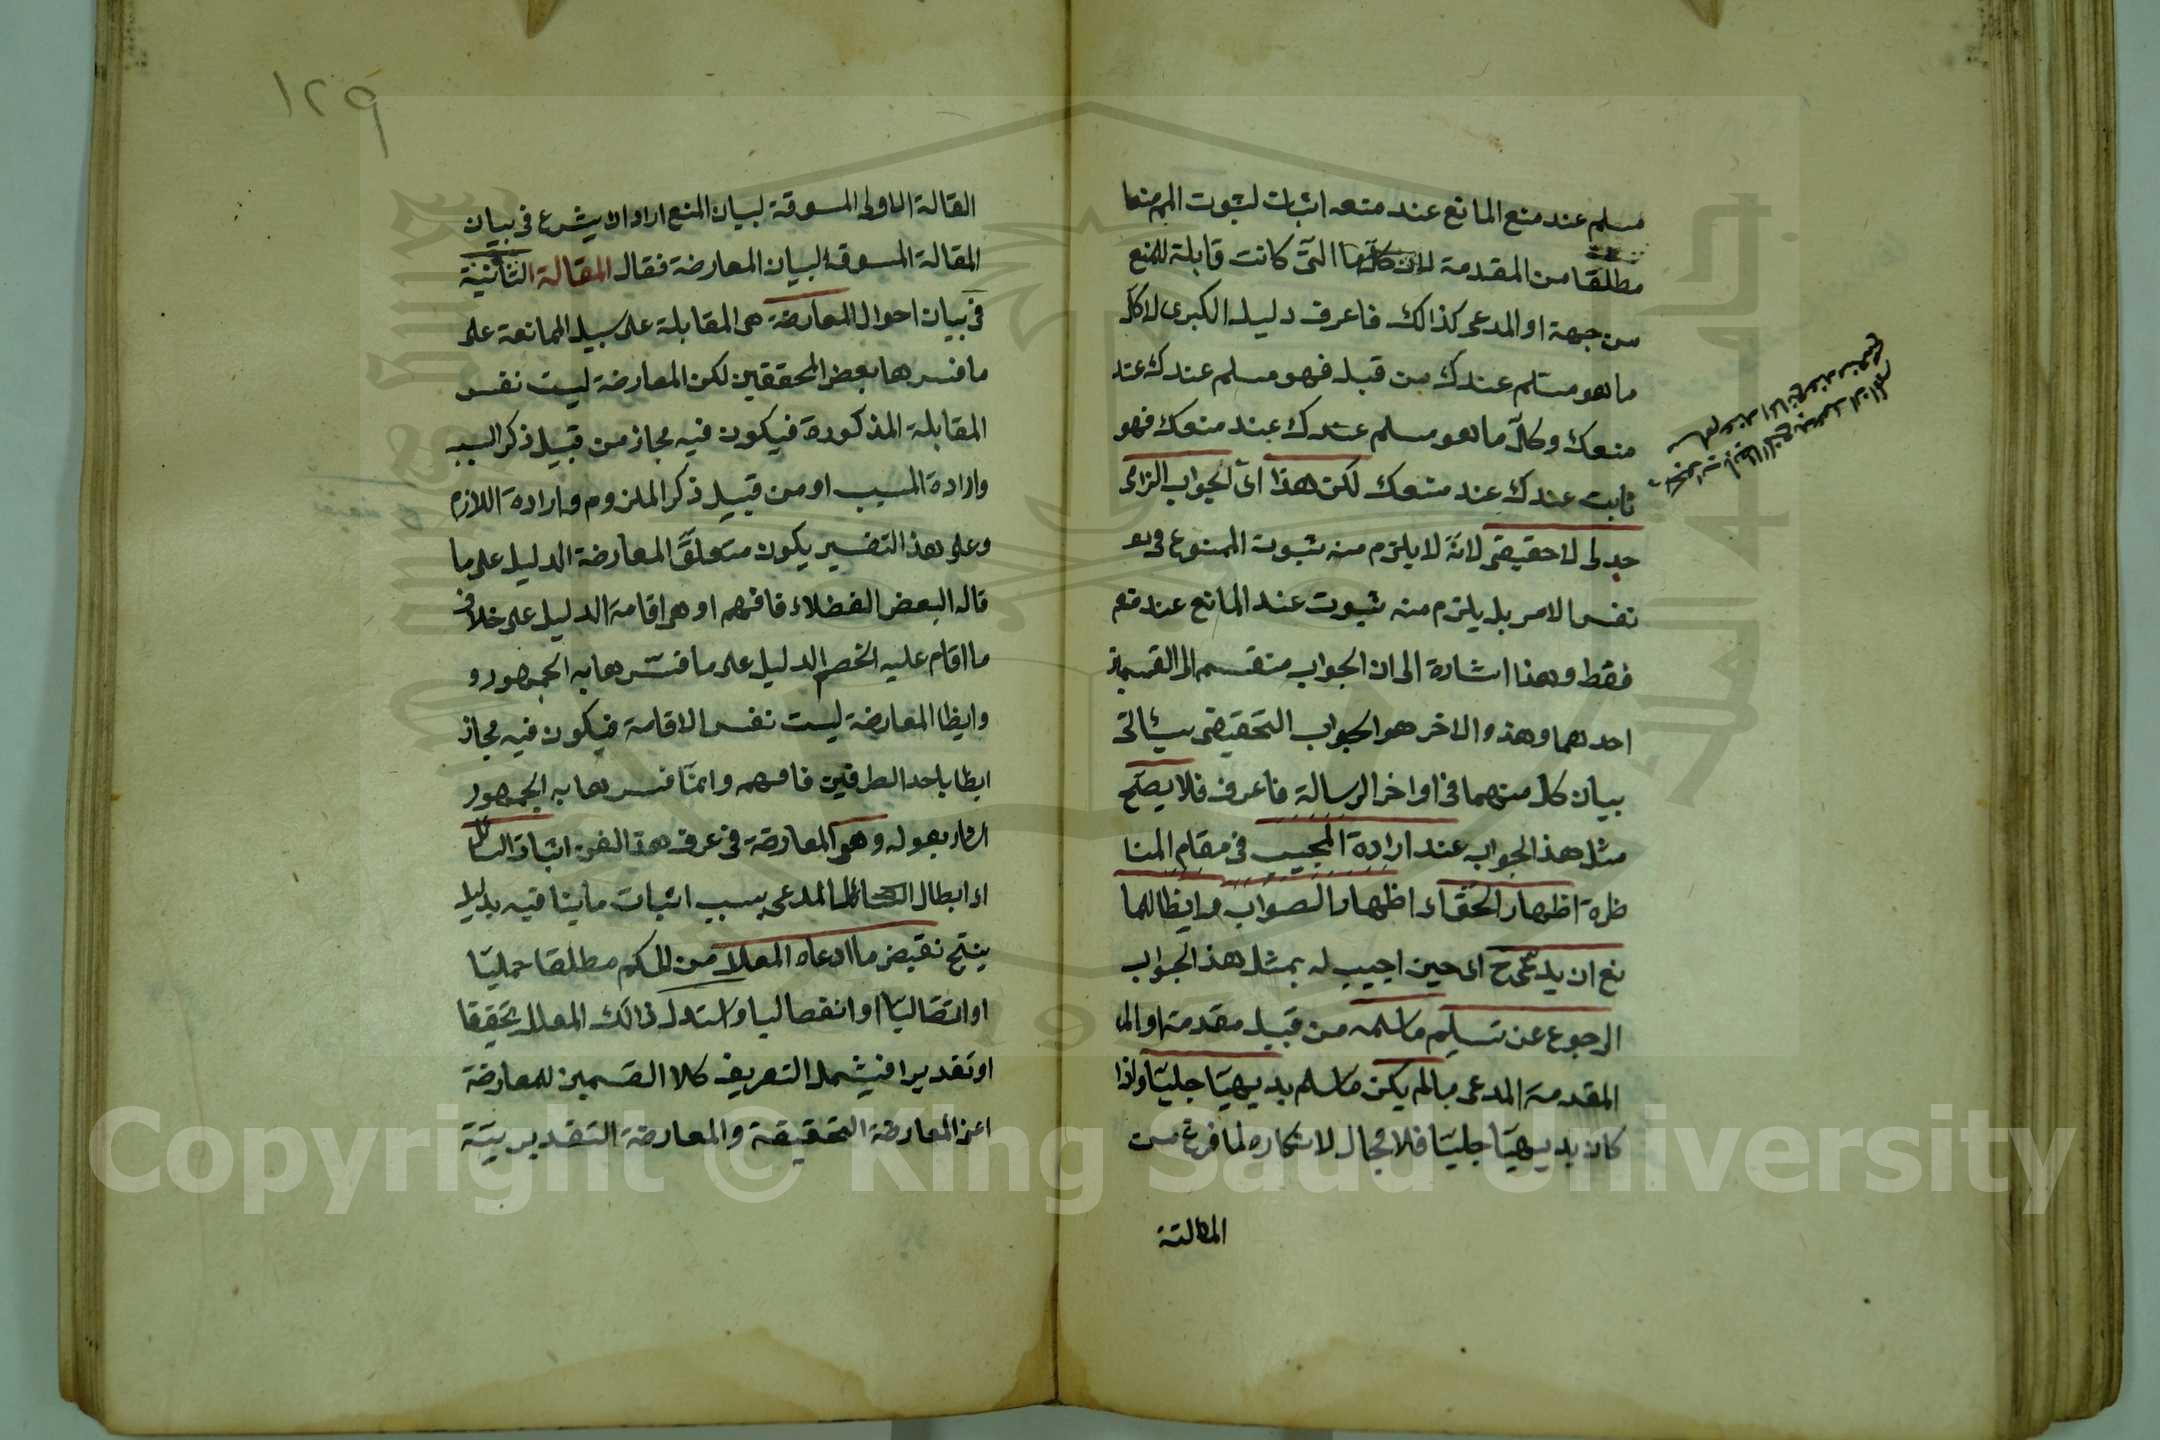 مسلم عند منع المانع عند منعه اثبات لثبوت الم
مطلقا من المقدمة التى كانت قابلة للمنع
من جهة او المدعى كذالك فاعرف دليل الكبرى لا كل
ما هو مسلم عندك من قبل فهو مسلم عندك عند
منعك وكل ما هو مسلم عندك عند منعك فهو
ثابت عندك عند منعك لكن هذا اى الجواب الزامى
جدلى لا حقيقى لانه لا يلزم منه ثبوت الممنوع فى
نفس الامر بل يلزم منه ثبوت عند المانع عند منعه
فقط وهذا اشارة الى ان الجواب منقسم الى القسمين
احدهما وهذه والاخر هو الجواب التحقيقى سيأتى
بيان كل منهما فى اواخر الرسالة فاعرف فلا يصح
مثل هذ الجواب عند ارادة المجيب فى مقام المنا
ظرة اظهار الحق اى اظهار الصواب وايظا للما
نع ان يدعى ح اى حين اجيب له بمثل هذ الجواب
الرجوع عن تسليم ما سلمه من قبيل مقدمة او الى
المقدمة المدعى مالم يكن ما سلم بديهيا جليا واذا
كان بديهيا جليا فلا مجال لانكاره لما فرغ من
المقالة
١٢٩
القالة الاولى المسوقة لبيان المنع اراد ان يشرع فى بيان
المقالة المسوقة لبيان المعارضة فقال المقالة الثانية
فى بيان احوال المعارضة هى المقابلة على سبيل الممانعة على
ما فسرها بعض المحققين لكن المعارضة ليست نفس
المقابلة المذكورة فيكون فيه مجاز من قبيل ذكر السبب
وارادة المسبب او من قبيل ذكر الملزوم وارادة اللازم
وعلى هذ التفسير يكون متعلق المعارضة الدليل على ما
قاله البعض الفضلاء فافهم او هى اقامة الدليل على خلاف
ما اقام عليه الخصم الدليل على ما فسرها به الجمهور و
وايظا المعارضة ليست نفس الاقامة فيكون فيه مجاز
ايظا باحد الطرفين فافهم وانما فسرها به الجمهور
اشار بقوله وهى المعارضة فى عرف هذ الفن اثبات السائل
او ابطال السائل المدعى بسبب اثبات ما ينافيه بدليل
ينتج نقيض ما ادعاه المعلل من الحكم مطلقا حمليا
او اتصاليا او انفصاليا واستدل ذالك المعلل تحقيقا
او تقديرا فيشمل التعريف كلا القسمين للمعارضة
اعنى المعارضة التحقيقة والمعارضة التقديريية
Copyright © King Saud University